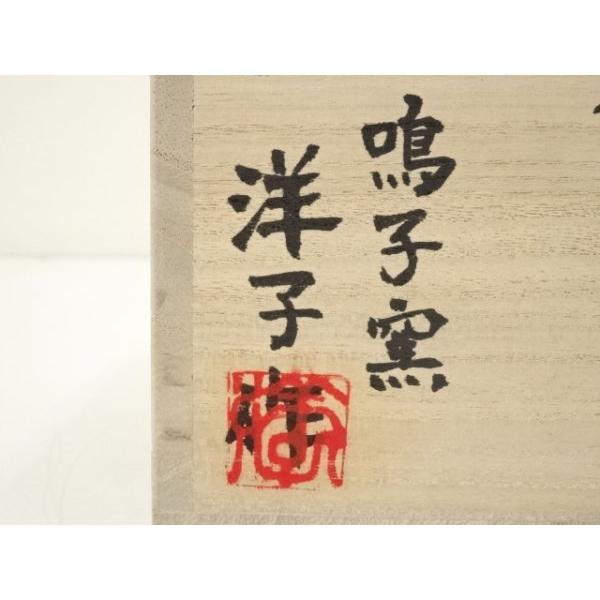 鳴子窯
洋子作